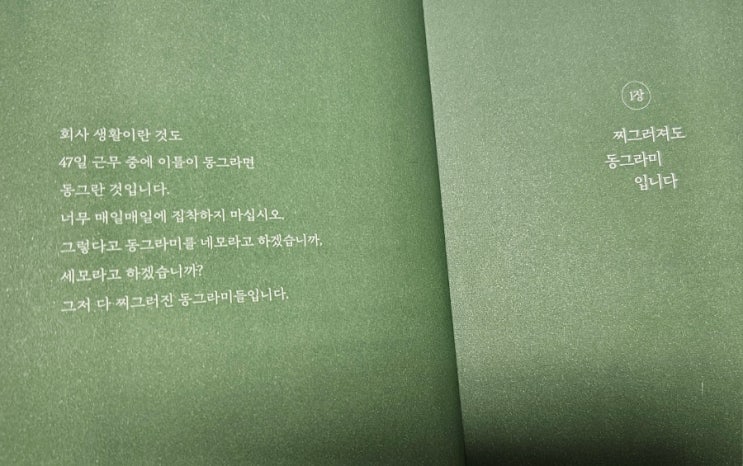 회사 생활이란 것도
47일 근무 중에 이틀이 동그라면
동그란 것입니다.
너무 매일매일에 집착하지 마십시오.
그렇다고 동그라미를 네모라고 하겠습니까,
세모라고 하겠습니까?
그저 다 찌그러진 동그라미들입니다.
1장
찌그러져도
동그라미
입니다